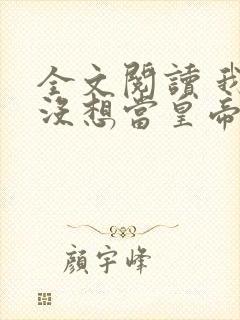 全文閱讀 我
沒想當皇帝
顏宇峰